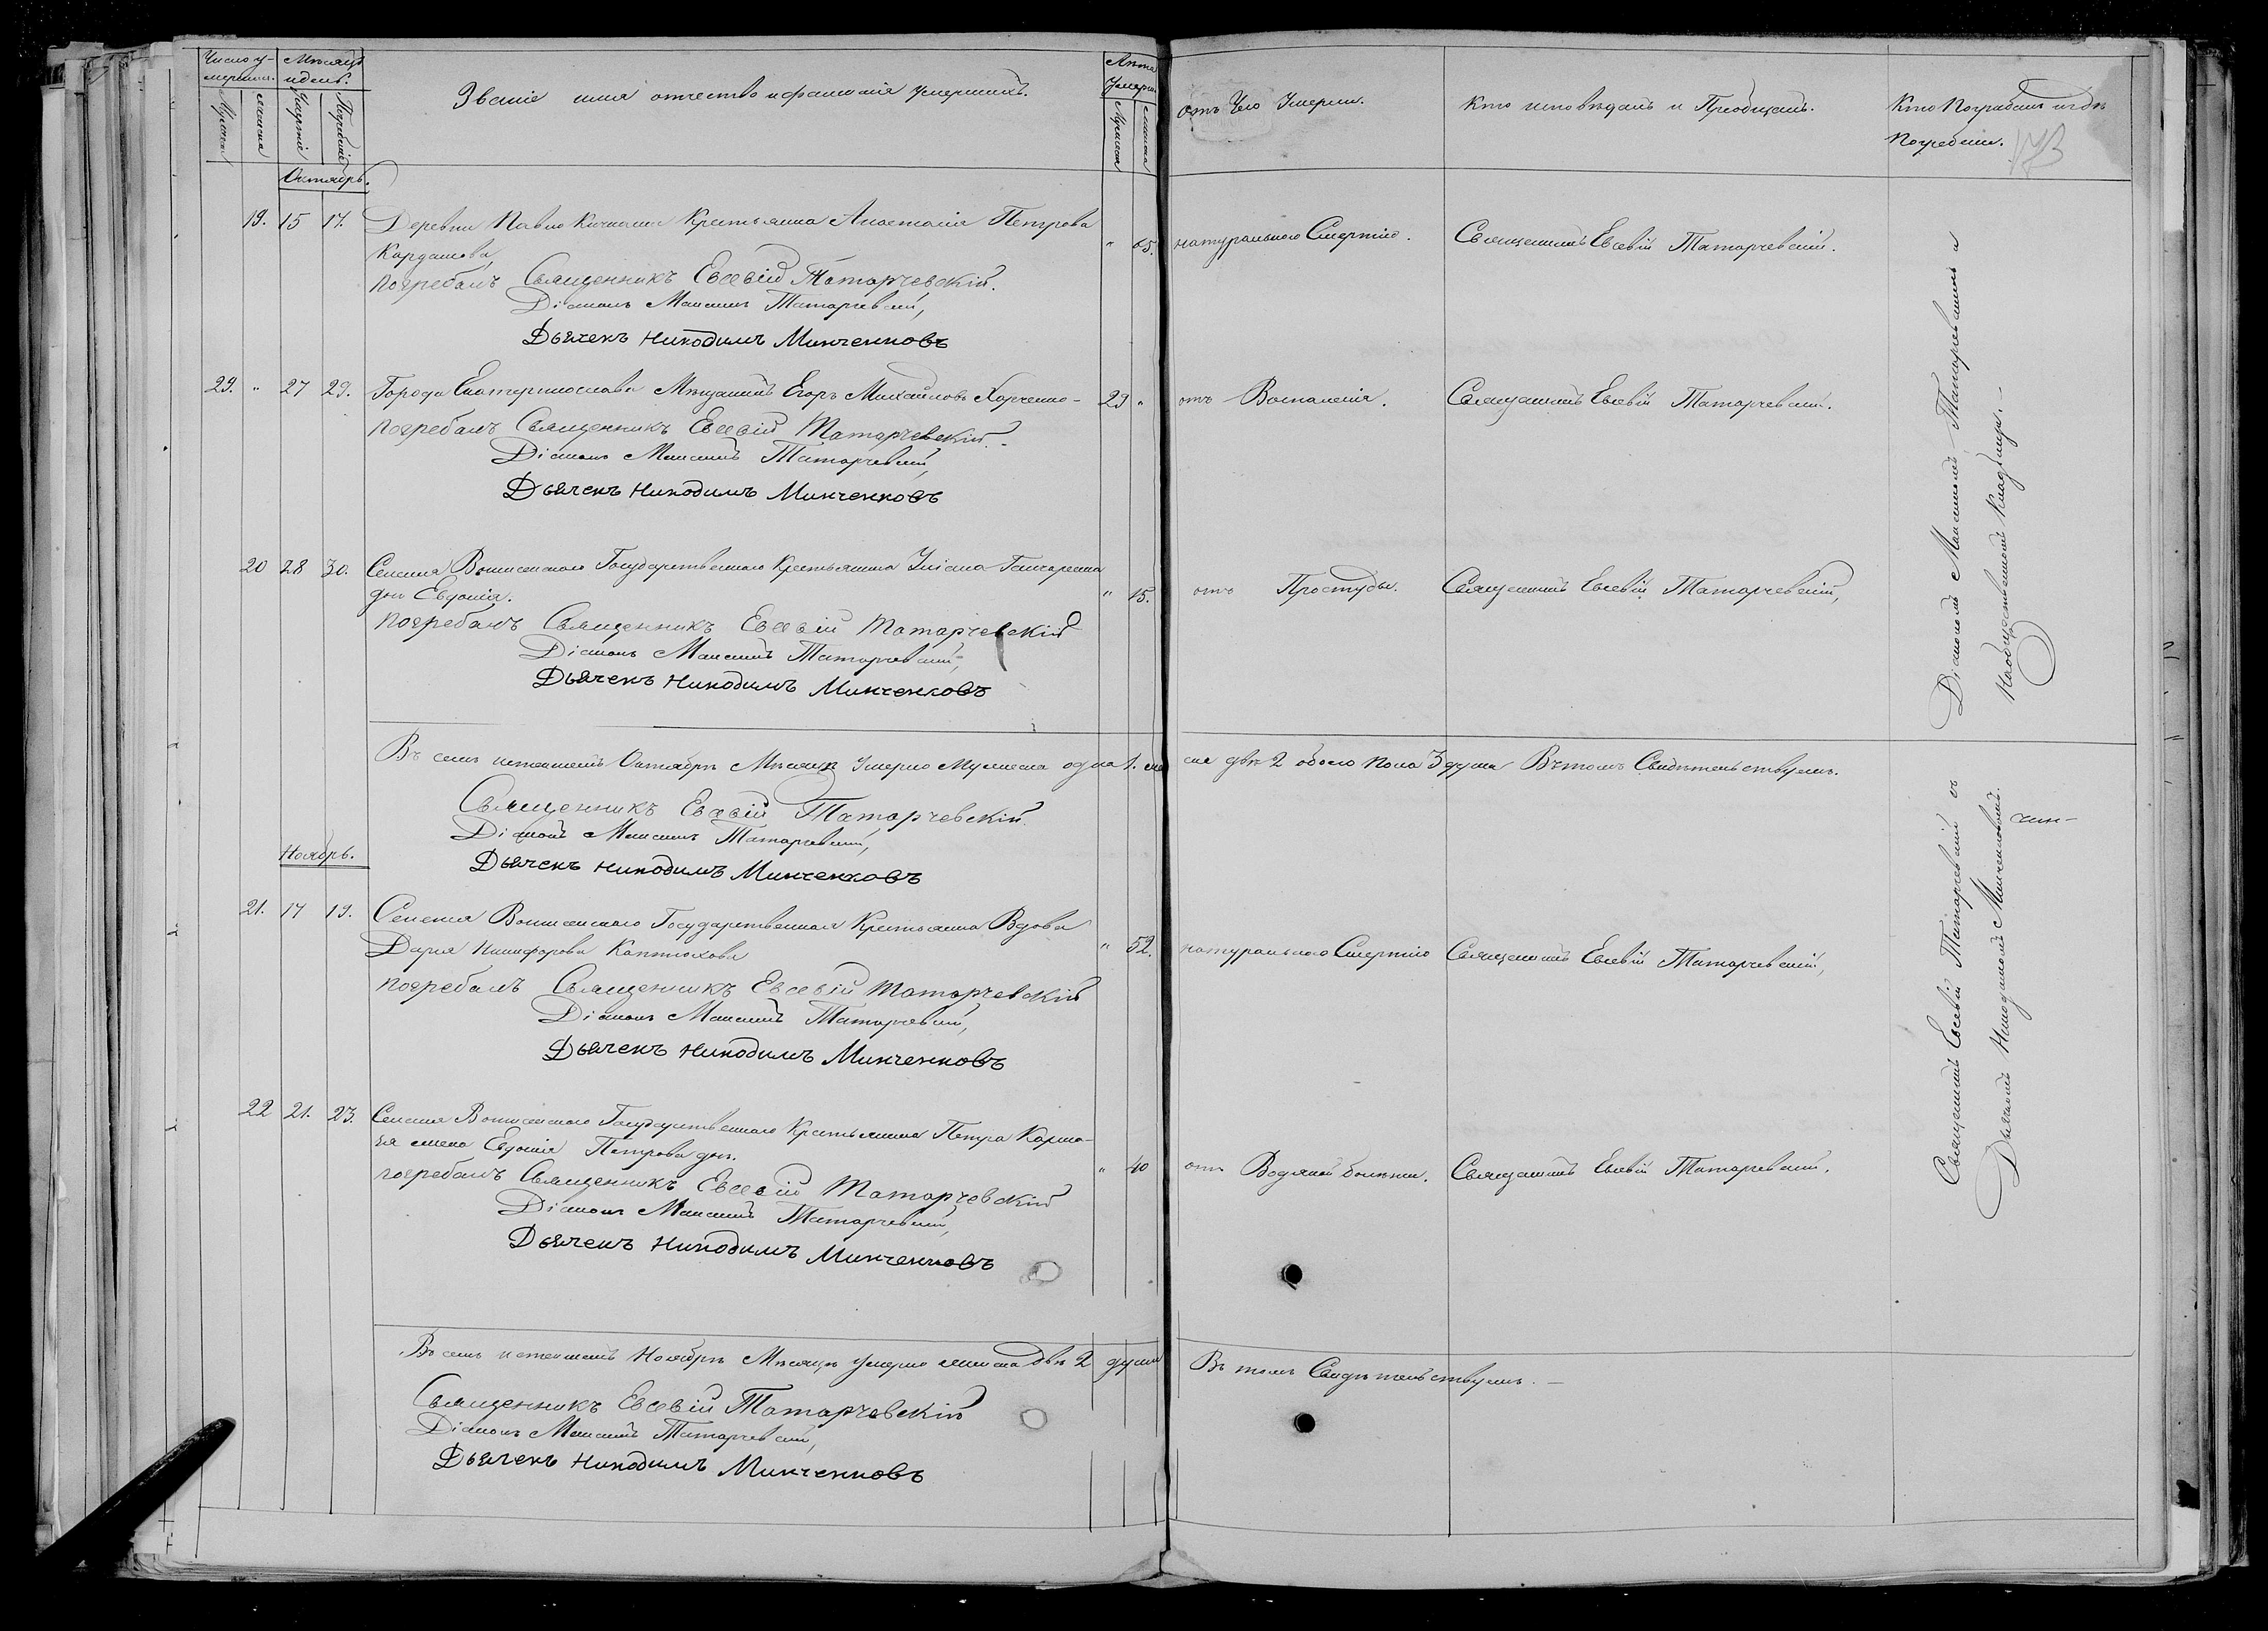 Число у-
мершихъ.
Мѣсяцъ
и день.
Званіе имя отчество и фамилія умершихъ.
Лѣта
Умерш.
отъ Чего Умерли.
Кто исповѣдалъ и Пріобщалъ.
Кто Погребалъ и гдѣ
Погребены.
173
Мужска
женска
Смерти
Погребенія
Мужска
женска
Октябрь.
19. 15 17. Деревни Павло Кичкаса Крестьянка Анастасія Петрова " 65. натуральною Смертію. Священникъ Евсевій Татарчевскій.
Кардашова,
погребалъ Священникъ Евсевій Татарчевскій.
Діаконъ Максимъ Татарчевскій,
Дьячекъ Никодимъ Минченковъ
29. " 27 29. Города Екатеринослава Мѣщанинъ Егоръ Михайловъ Харченко- 29 " отъ Воспаленія. Священникъ Евсевій Татарчевскій.
погребалъ Священникъ Евсевій Татарчевскій.
Діаконъ Максимъ Татарчевскій,
Дьячекъ Никодимъ Минченковъ
20 28 30. Селенія Государственнаго Крестьянина Гончаренка
дочь Евдокія. " 15. отъ Простуды. Священникъ Евсевій Татарчевскій,
погребалъ Священникъ Евсевій Татарчевскій
Діаконъ Максимъ Татарчевскій,
Дьячекъ Никодимъ Минченковъ
Въ семъ истекшемъ Октябрѣ Мѣсяцѣ Умерло Мужеска одна 1. женска двѣ 2 обоего пола 3 души Въ томъ Свидѣтельствуемъ.
Священникъ Евсевій Татарчевскій.
Діаконъ Максимъ Татарчевскій,
Дьячекъ Никодимъ Минченковъ
Ноябрь.
21. 17 19. Селенія Государственная Крестьянка Вдова
Дарія Никифорова Каптюхова " 52. натуральною Смертію Священникъ Евсевій Татарчевскій,
погребалъ Священникъ Евсевій Татарчевскій
Діаконъ Максимъ Татарчевскій,
Дьячекъ Никодимъ Минченковъ
22 21. 23. Селенія Государственнаго Крестьянина Петра
жена Евдокія Петрова дочь. " 40 отъ Водяной болѣзни. Священникъ Евсевій Татарчевскій.
погребалъ Священникъ Евсевій Татарчевскій
Діаконъ Максимъ Татарчевскій,
Дьячекъ Никодимъ Минченковъ
Въ семъ истекшемъ Ноябрѣ Мѣсяцѣ умерло женска двѣ 2 души Въ томъ Свидѣтельствуемъ. —
Священникъ Евсевій Татарчевскій
Діаконъ Максимъ Татарчевскій,
Дьячекъ Никодимъ Минченковъ
Священникъ Евсевій Татарчевскій съ
Діакономъ Максимомъ Татарчевскимъ и
Дьячкомъ Никодимомъ Минченковымъ.
На общественномъ Кладбищѣ. —